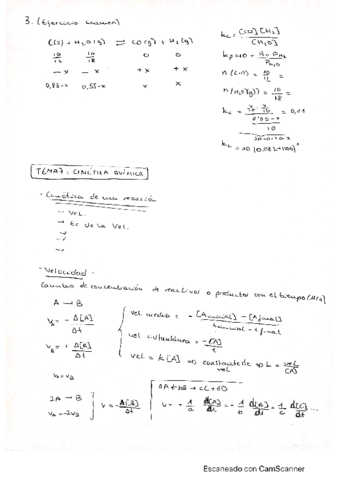 3. (Ejercicio examen)
C(s) + H2O(g) ⇌ CO(g) + H2(g)
10/12 10/18 0 0
-x -x +x +x
0,83-x 0,55-x x x
kc = [CO][H2] / [H2O]
n(C(s)) = 10/12 =
n(H2O(g)) = 10/18 =
TEMA 7: CINÉTICA QUÍMICA
- Cinética de una reacción
-- Vel.
→ Ec de la Vel.
- Velocidad.
Cambio de concentración de reactivos o productos con el tiempo (M/s)
A → B
vA = - Δ[A] / Δt
vB = + Δ[B] / Δt
vA = vB
vel media = - [A inicial] - [A final] / t inicial - t final
vel instantánea = -[A] / t
vel = k[A] ⇒ constante de vel ⇒ k = vel / [A]
2A → B
vA = -2vB
v = -Δ[B] / Δt
aA + bB → cC + dD
v = - 1/a d[A]/dt = - 1/b d[B]/dt = 1/c d[C]/dt ...
Escaneado con CamScanner